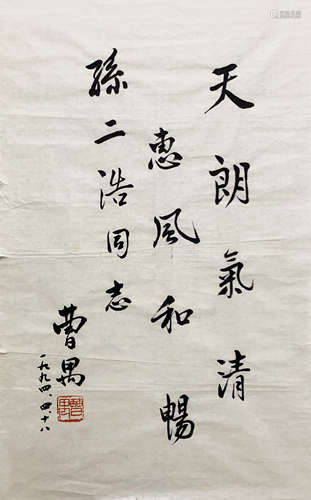 天朗氣清
惠風和暢
孫二浩同志
曹禺
一九九四、四、十八